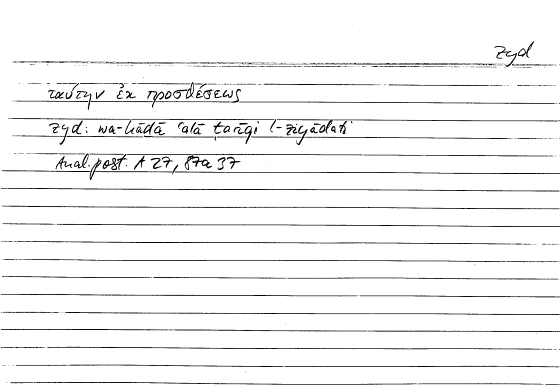 zyd
ταύτην ἐκ προσθέσεως
zyd: wa-hāḏā ʿalā ṭarīqi l-ziyādati
Anal. post. A 27, 87a 37